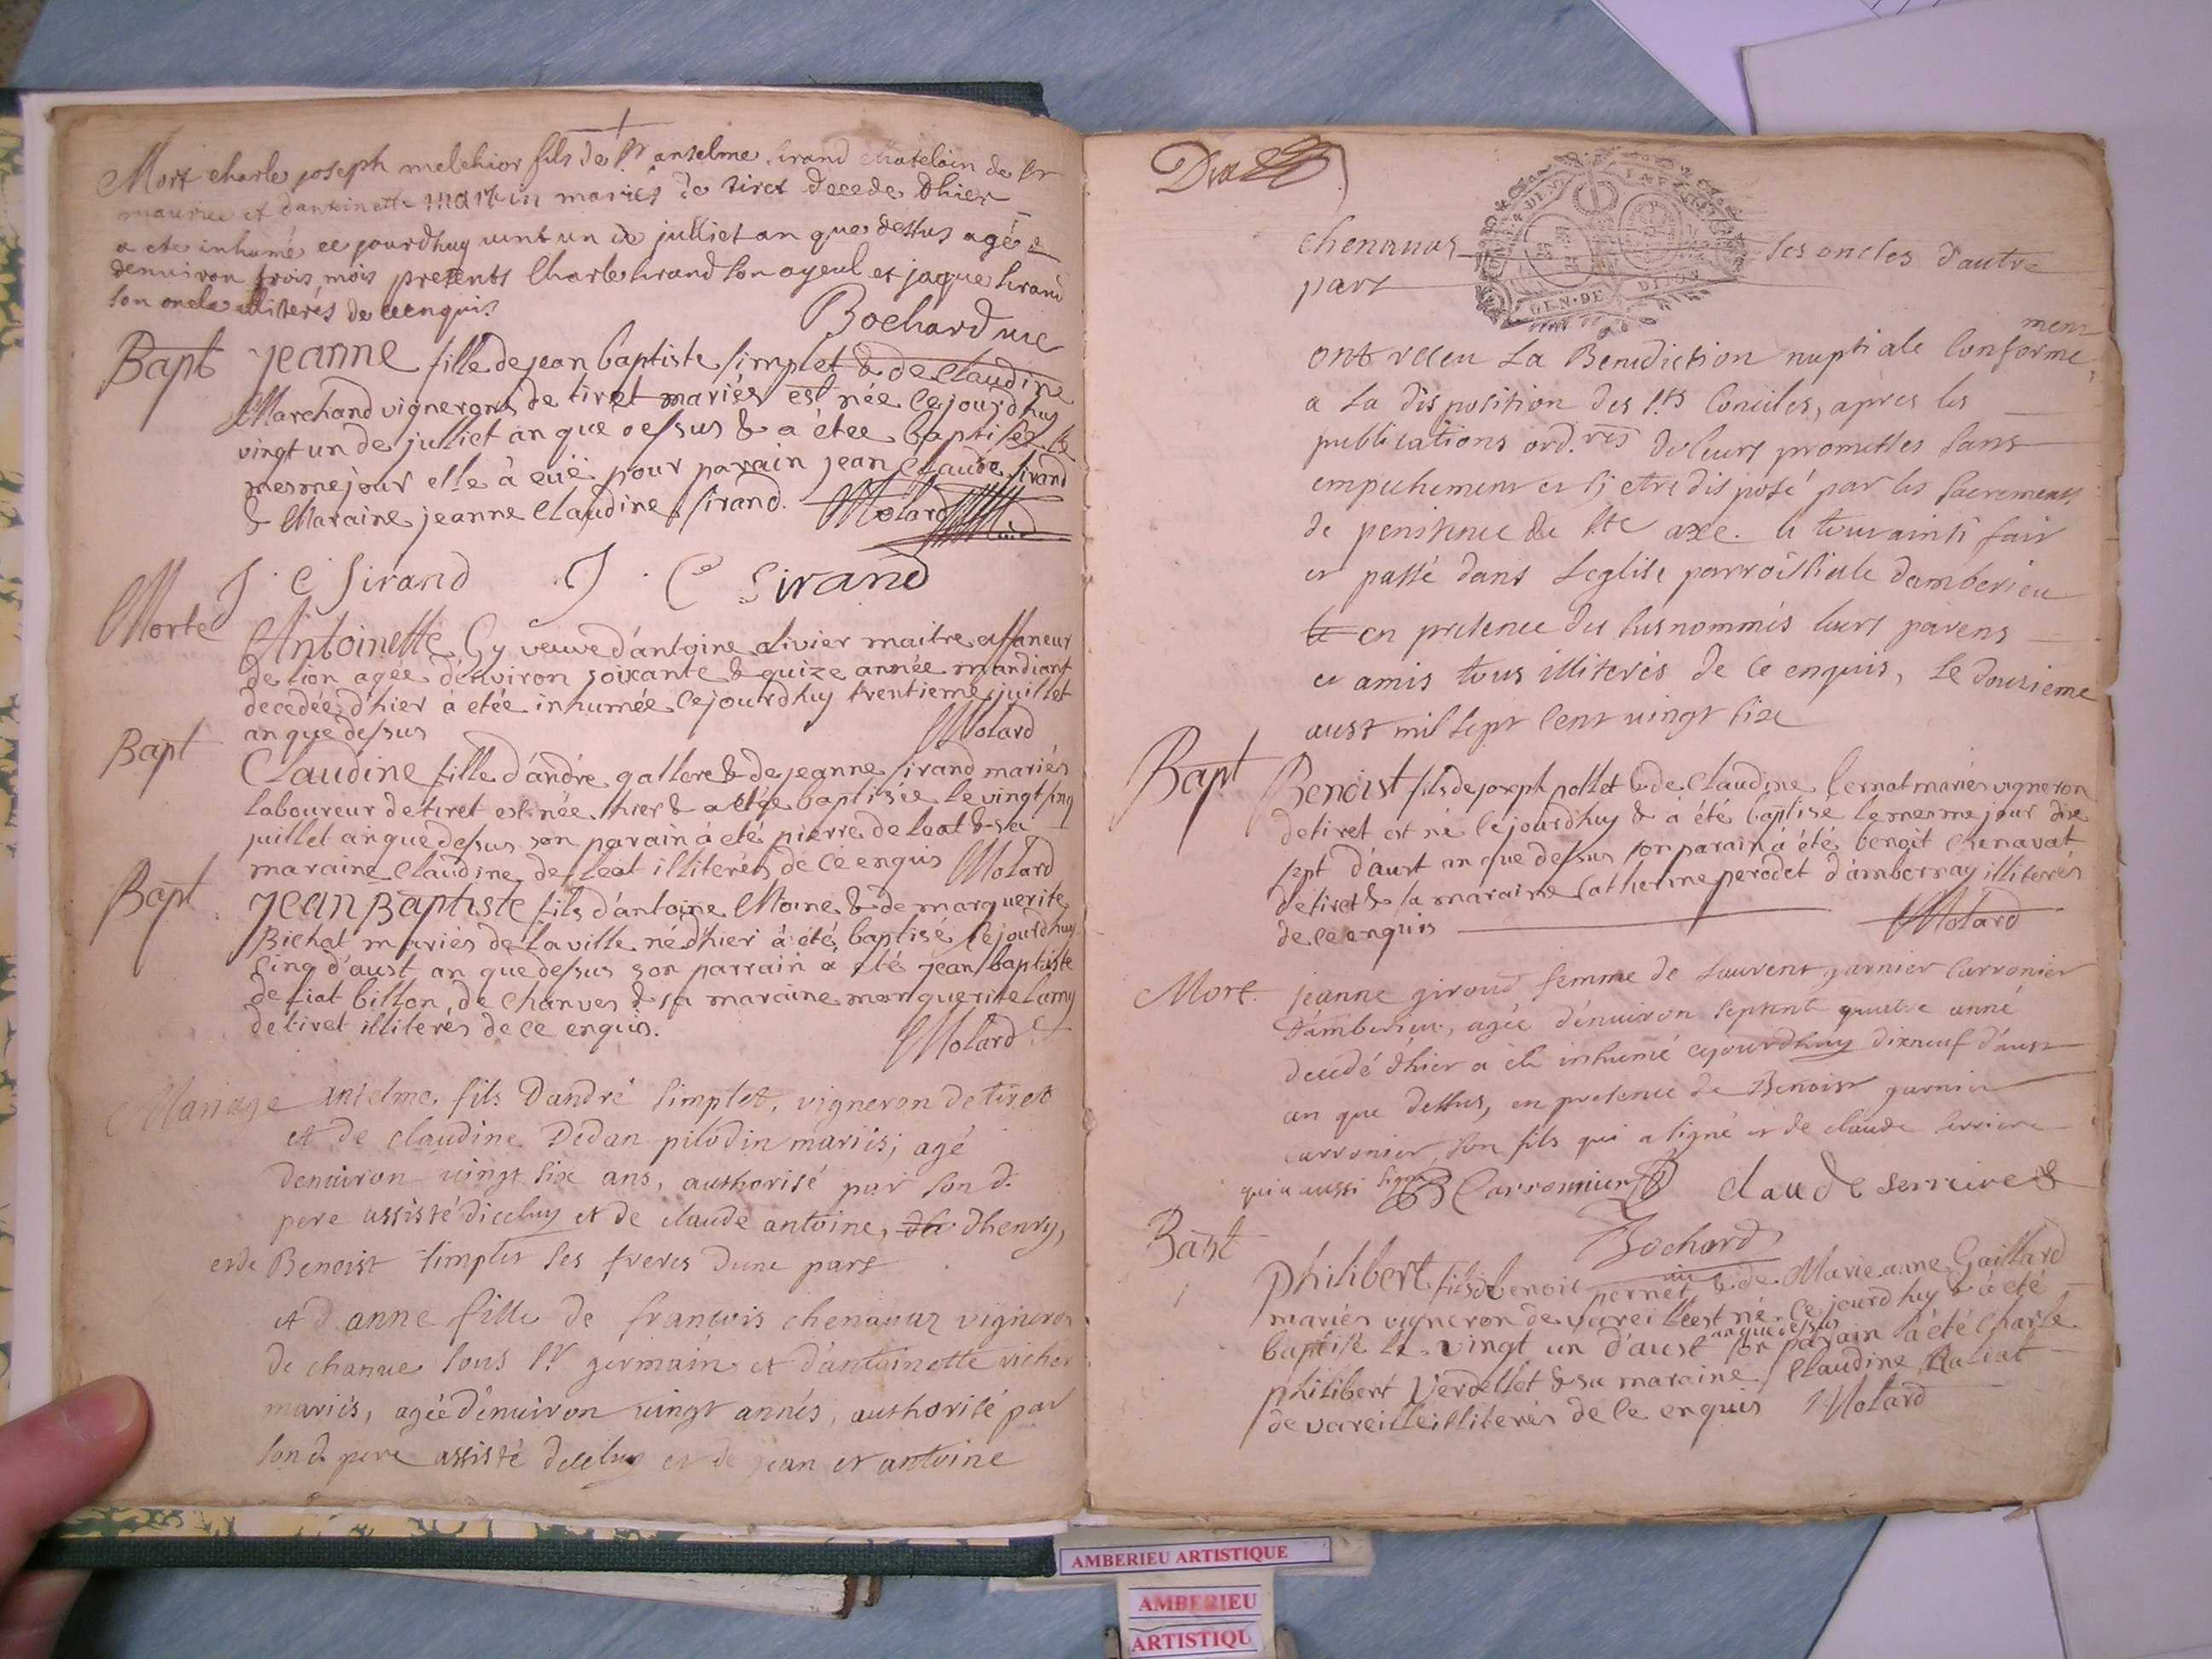 Mort charle joseph melchior fils de Sr anselme sirand chatelain de St
maurice et dantoinette martin mariés de tiret decede dhier
a ete inhumé ce jourdhuy vint un de julliet an que dessus agé
denuiron trois mois presents Charle sirand son ayeul et jaque sirand
son oncle illiterés de ce enquis
Bochard vic
Bapt jeanne fille de jean baptiste simplet & de claudine
Marchand vignerons de tiret mariés est née ce jourd'huy
vingt un de julliet an que dessus & a étée baptisée le
mesme jour elle à eüe pour parain jean claude sirand
& Maraine jeanne claudine sirand. Molard
J. C Sirand J. C Sirand
Morte
Antoinette Gy veuve d'antoine olivier maitre affaneur
de lion agée d'environ soixante & quize année mandiant
decedée d'hier à etée inhumée ce jourd'huy trentieme juillet
an que dessus Molard
Bapt
Claudine fille d'andre gallore & de jeanne sirand mariés
laboureur de tiret est née hier & a étée baptisée le vingt sinq
juillet an que dessus son parain à eté pierre de leat & sa
maraine Claudine de leat illiterés de ce enquis Molard
Bapt. jean Baptiste fils d'antoine Moine & de marguerite
Bichat mariés de la ville né d'hier à été baptisé ce jourd'huy
sinq d'aust an que dessus son parrain à eté jean baptiste
de liat billon de chanves & sa maraine marguerite lamy
de tiret illiterés de ce enquis.
Molard
Mariage anselme, fils D'andré simplet, vigneron de tiret
et de claudine Dedan pilodin mariés; agé
denuiron vingt six ans, authorisé par son d.
pere assisté dicelluy et de claude antoine, dhenry,
et de Benoist simplet ses freres dune part
et d'anne fille de francois chenavaz vigneron
de chanue sous St germain et d'antoinette richer
mariés, agée dénuiron vingt annés, authorisé par
son d. pere assisté dicelluy et de jean et antoine
chenavas ses oncles d'autre
part
GEN·DE DIJON
ont receu La Benediction nuptiale Conforme
ment
a La disposition des Sts Conciles, apres les
publications ord.res de leurs promesses sans
empechement et sj etre disposé par les sacrements
de penitence de Ste axe. le tout ainsi fair
et passé dans Leglise parroissiale damberieu
en presence des susnommés leurs parens
et amis tous illiterés de ce enquis, Le douzieme
aust mil sept cent vingt six
Bapt Benoist fils de joseph pollet & de Claudine Cernat mariés vigneron
de tiret est né ce jourd'huy & à été baptisé le mesme jour dix
sept d'aust an que dessus son parain à été benoit chenavat
de tiret & sa maraine Catherine perodet d'ambernay illiterés
de ce enquis Molard
Mort. jeanne giroud femme de Laurent garnier Carronier
D'amberieu, agée d'enuiron septente quatre anné
decedé d'hier a été inhumé cejourdhuy dixneuf d'aust
an que dessus, en presence de Benoist garnier
carronier, son fils qui a signé et de claude serriere
qui a aussi signé B Carronnier claude serriere
Bochard
vic
Bapt
Philibert fils de benoit pernet & de Marie anne Gaillard
mariés vigneron de vareille est né ce jourd'huy & à été
baptisé le vingt un d'aust an que dessus son parain à été Charle
philibert Verdellet & sa maraine Claudine
de vareille illiterés de ce enquis Molard
AMBERIEU ARTISTIQUE
AMBERIEU
ARTISTIQU